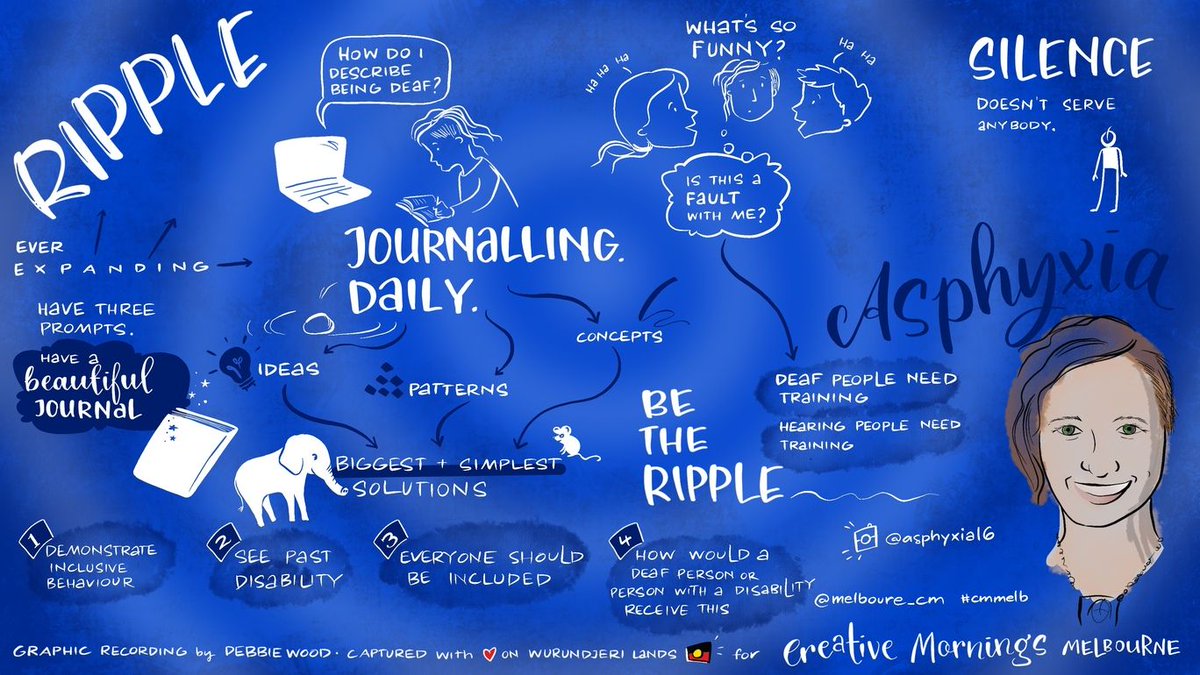 RIPPLE
EVER
EXPANDING
HAVE THREE
PROMPTS.
HAVE A
beautiful
JOURNAL
HOW DO I
DESCRIBE
BEING DEAF?
JOURNALLING.
DAILY.
IDEAS
PATTERNS
CONCEPTS
BIGGEST + SIMPLEST
SOLUTIONS
WHAT'S SO
FUNNY?
Ha Ha Ha
Ha Ha
IS THIS A
FAULT
WITH ME?
SILENCE
DOESN'T SERVE
ANYBODY.
Asphyxia
DEAF PEOPLE NEED
TRAINING
HEARING PEOPLE NEED
TRAINING
BE
THE
RIPPLE
1
DEMONSTRATE
INCLUSIVE
BEHAVIOUR
2
SEE PAST
DISABILITY
3
EVERYONE SHOULD
BE INCLUDED
4
HOW WOULD A
DEAF PERSON OR
PERSON WITH A DISABILITY
RECEIVE THIS
@asphyxia16
@melboure_cm #cmmelb
GRAPHIC RECORDING by DEBBIE WOOD. CAPTURED with ON WURUNDJERI LANDS for Creative Mornings MELBOURNE